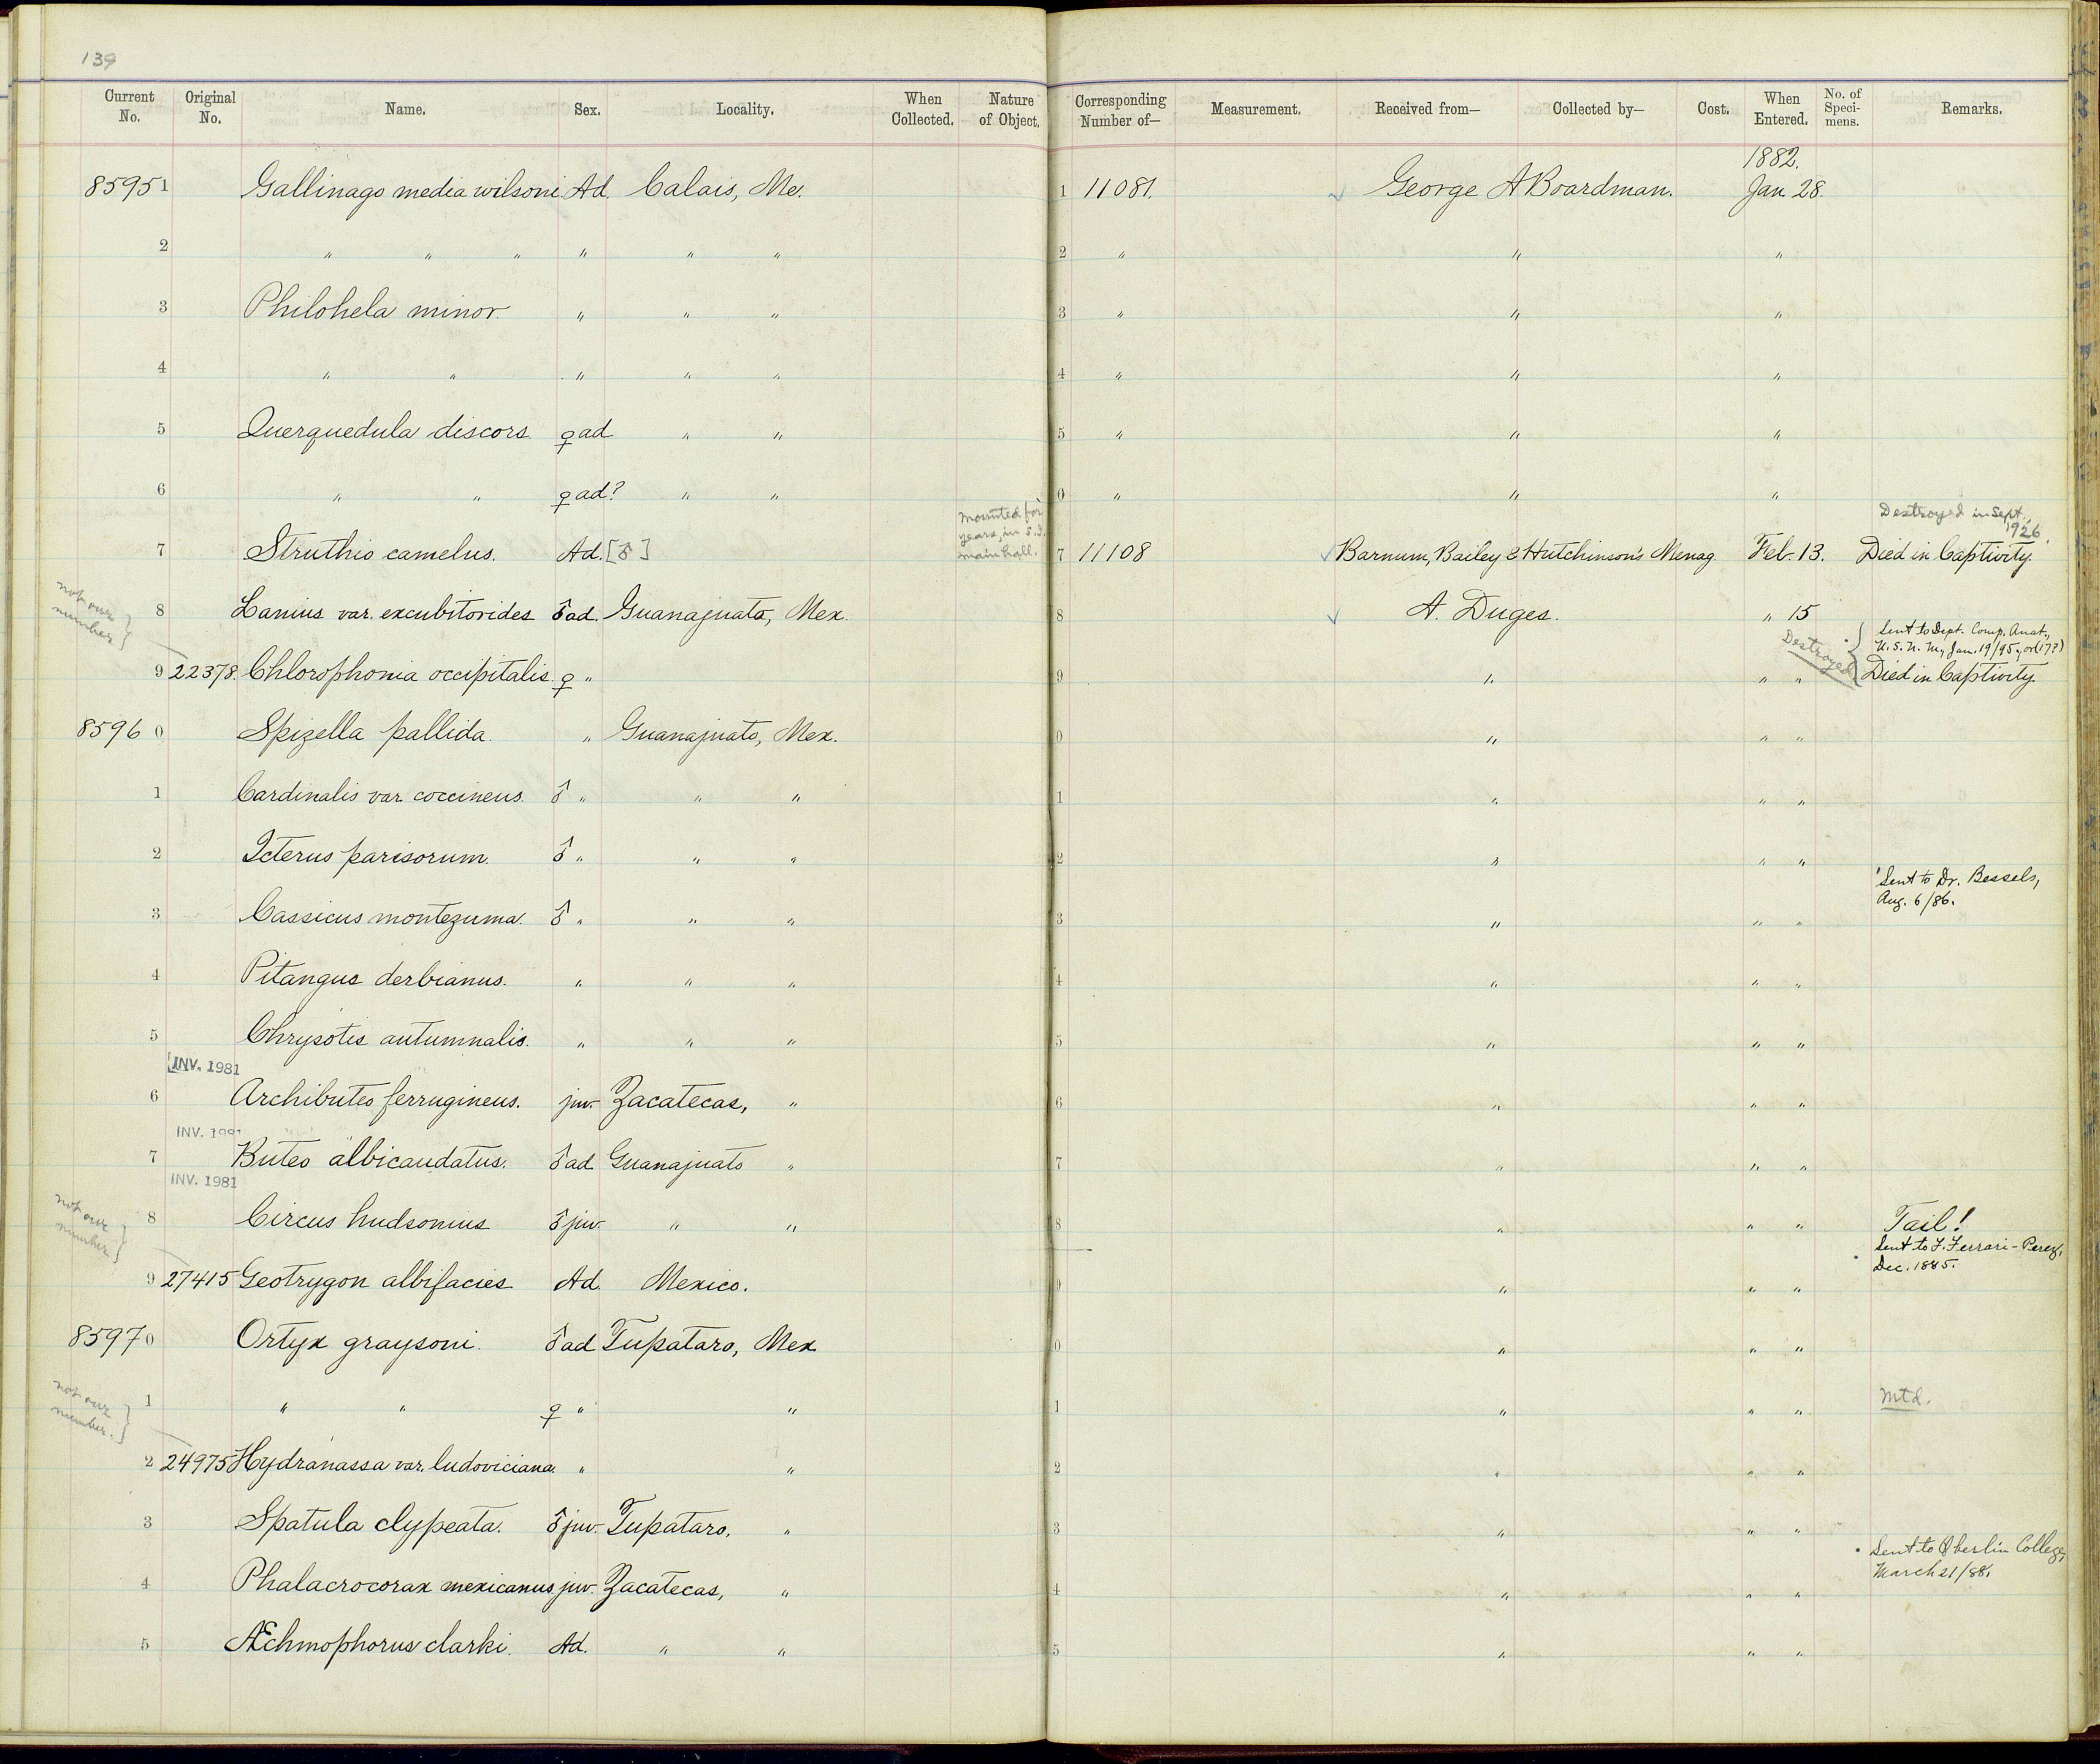 139
Current No. Original No. Name. Sex. Locality. When Collected. Nature of Object. Corresponding Number of— Measurement. Received from— Collected by— Cost. When Entered. No. of Specimens. Remarks.
1882.
85951 Gallinago media wilsoni. Ad. Calais, Me. 1 11081. George A Boardman. Jan. 28.
2 " " " " " " 2 " " "
3 Philohela minor. " " " 3 " " "
4 " " " " " 4 " " "
5 Querquedula discors. ♀ ad " " 5 " " "
6 " " ♀ ad? " " 6 " " "
mounted for years, in S.I. main hall.
Destroyed in Sept. 1926.
7 Struthio camelus. Ad. [♂] 7 11108 Barnum, Bailey & Hutchinson's Menag. Feb. 13. Died in Captivity.
not our number }
8 Lanius var. excubitorides ♂ ad. Guanajuato, Mex. 8 A. Duges. " 15
Sent to Dept. Comp. Anat., U.S.N.M., Jan. 19/95, or (17?)
Destroyed
9 22378. Chlorophonia occipitalis. ♀ " 9 " " " Died in Captivity.
85960 Spizella pallida. " Guanajuato, Mex. 0 " " "
1 Cardinalis var. coccineus. ♂ " " " 1 " " "
2 Icterus parisorum. ♂ " " " 2 " " "
Sent to Dr. Bessels, Aug. 6/86.
3 Cassicus montezuma. ♂ " " " 3 " " "
4 Pitangus derbianus. " " " 4 " " "
5 Chrysotis autumnalis. " " " 5 " " "
INV. 1981
6 Archibuteo ferrugineus. juv. Zacatecas, " 6 " " "
INV. 1981
7 Buteo albicaudatus. ♂ ad Guanajuato " 7 " " "
INV. 1981
not our number }
8 Circus hudsonius ♂ juv. " " 8 " " " Tail!
Sent to F. Ferrari-Perez, Dec. 1885.
9 27415 Geotrygon albifacies Ad. Mexico. 9 " " "
85970 Ortyx graysoni. ♂ ad Tupataro, Mex 0 " " "
not our number. }
1 " " ♀ " " 1 " " " Mtd.
2 24975 Hydranassa var. ludoviciana. " " 2 " " "
3 Spatula clypeata. ♂ juv. Tupataro, " 3 " " "
Sent to Oberlin College, March 21/88.
4 Phalacrocorax mexicanus juv. Zacatecas, " 4 " " "
5 Æchmophorus clarki. Ad. " " 5 " " "